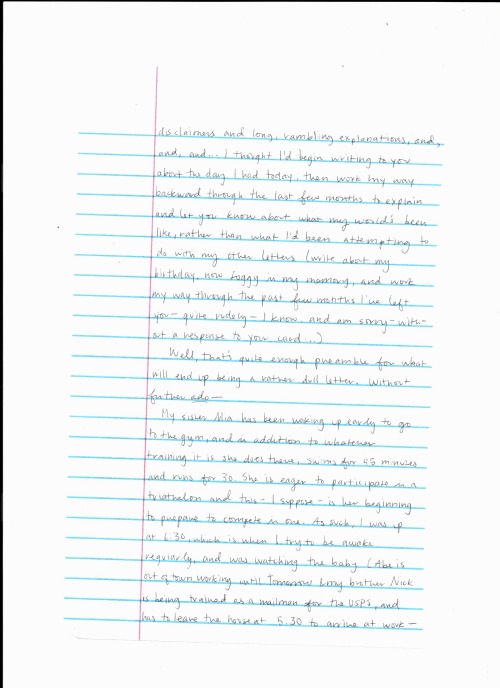 disclaimers and long, rambling explanations, and,
and, and... I thought I'd begin writing to you
about the day I had today, then work my way
backward through the last few months to explain
and let you know about what my world's been
like, rather than what I'd been attempting to
do with my other letters (write about my
birthday, now foggy in my memory, and work
my way through the past few months I've left
you - quite rudely - I know, and am sorry - with-
out a response to your card...)
Well, that's quite enough preamble for what
will end up being a rather dull letter. Without
further ado—
My sister Mia has been waking up early to go
to the gym, and in addition to whatever
training it is she does there, swims for 45 minutes
and runs for 30. She is eager to participate in a
triathelon and this - I suppose - is her beginning
to prepare to compete in one. As such, I was up
at 6:30, which is when I try to be awake
regularly, and was watching the baby (Abe is
out of town working until Tomorrow & my brother Nick
is being trained as a mailman for the USPS, and
has to leave the house at 5:30 to arrive at work -